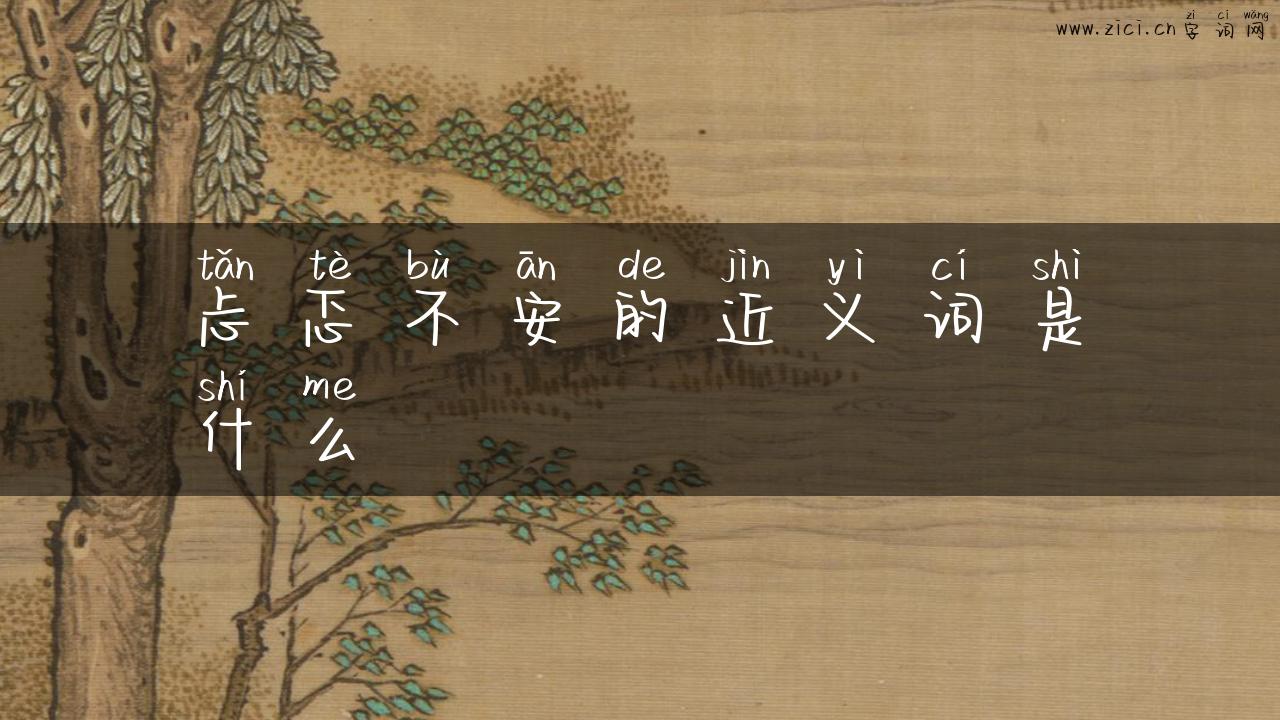 zì cí wǎng
www.zici.cn 字词网
tǎn tè bù ān de jìn yì cí shì
忐忑不安的近义词是
shí me
什么